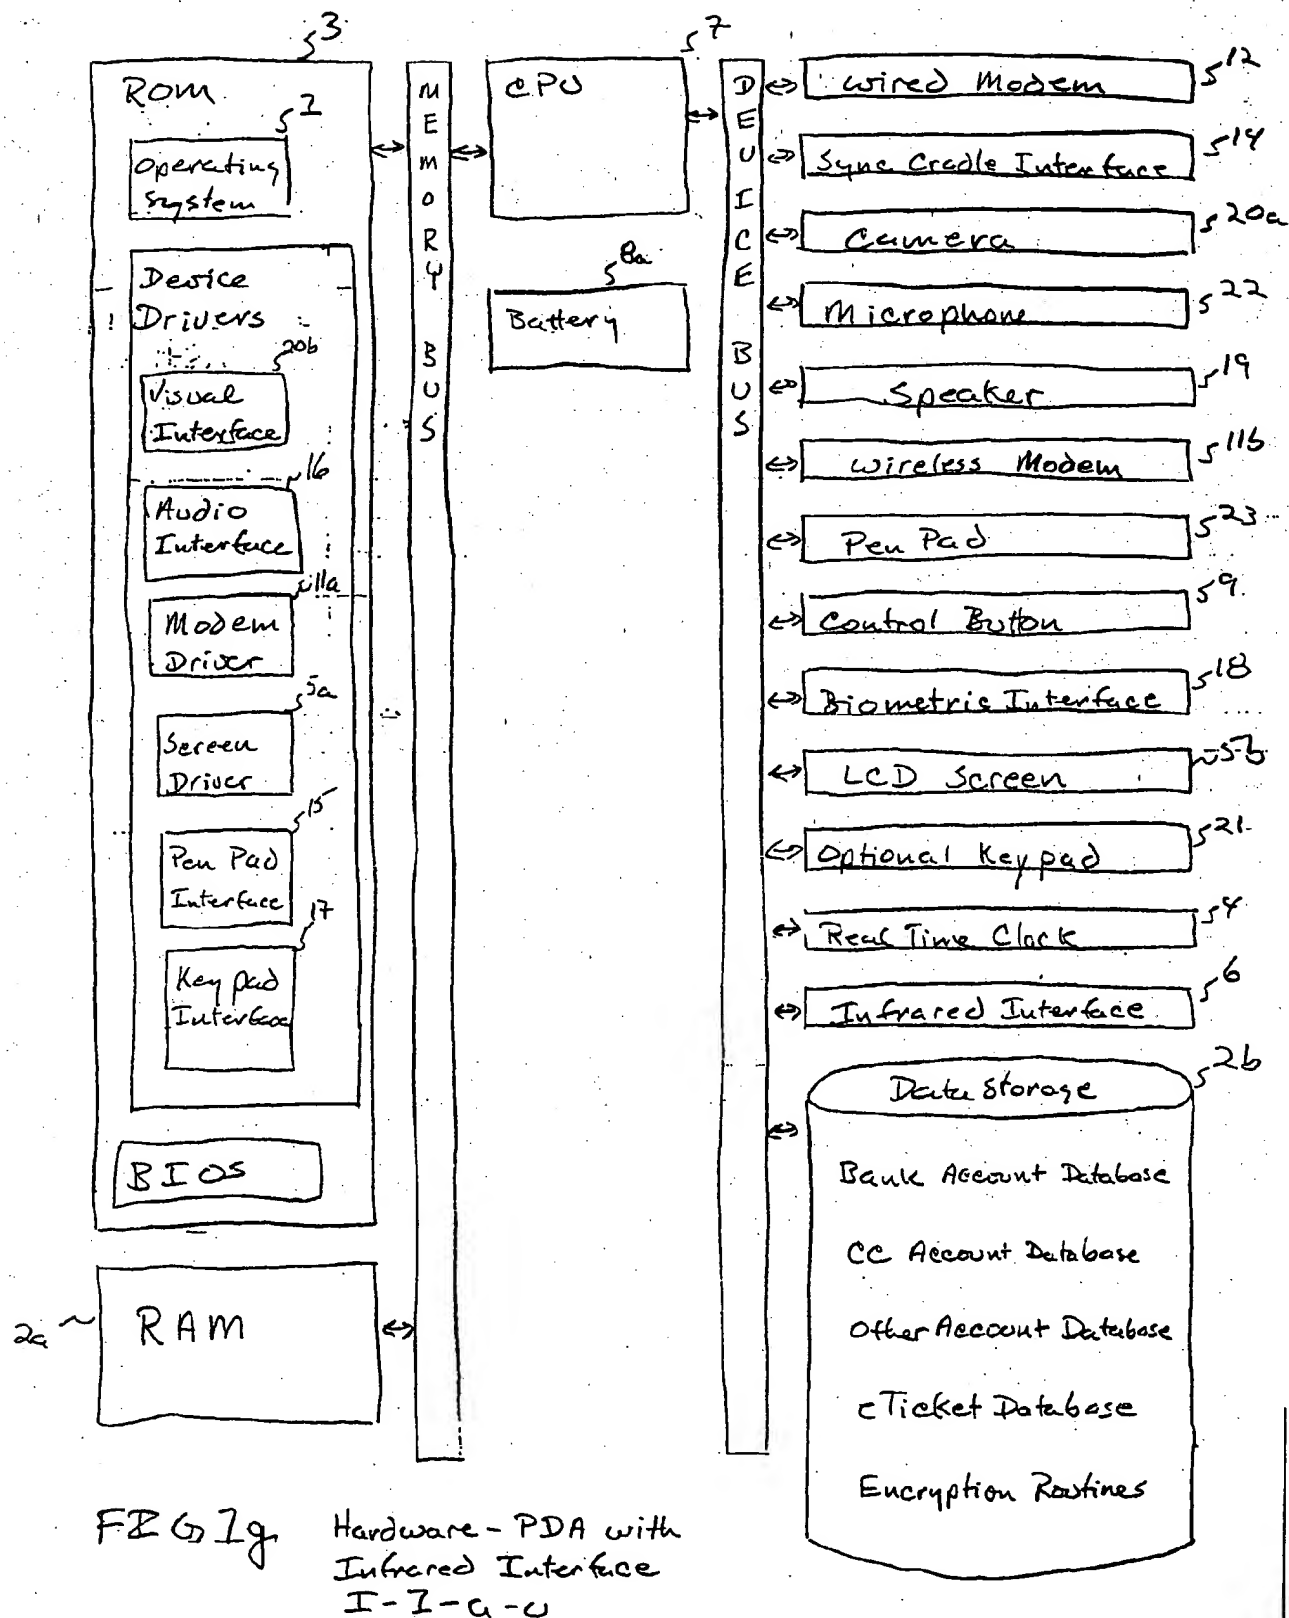 3
ROM
1
Operating
System
Device
Drivers
20b
Visual
Interface
16
Audio
Interface
11a
Modem
Driver
5a
Screen
Driver
15
Pen Pad
Interface
17
Keypad
Interface
BIOS
2a
RAM
MEMORY BUS
7
CPU
8a
Battery
DEVICE BUS
12
Wired Modem
14
Sync Cradle Interface
20a
Camera
22
Microphone
19
Speaker
11b
Wireless Modem
23
Pen Pad
9
Control Button
18
Biometric Interface
5b
LCD Screen
21
Optional Keypad
4
Real Time Clock
6
Infrared Interface
2b
Data Storage
Bank Account Database
CC Account Database
Other Account Database
eTicket Database
Encryption Routines
FIG 1g
Hardware - PDA with
Infrared Interface